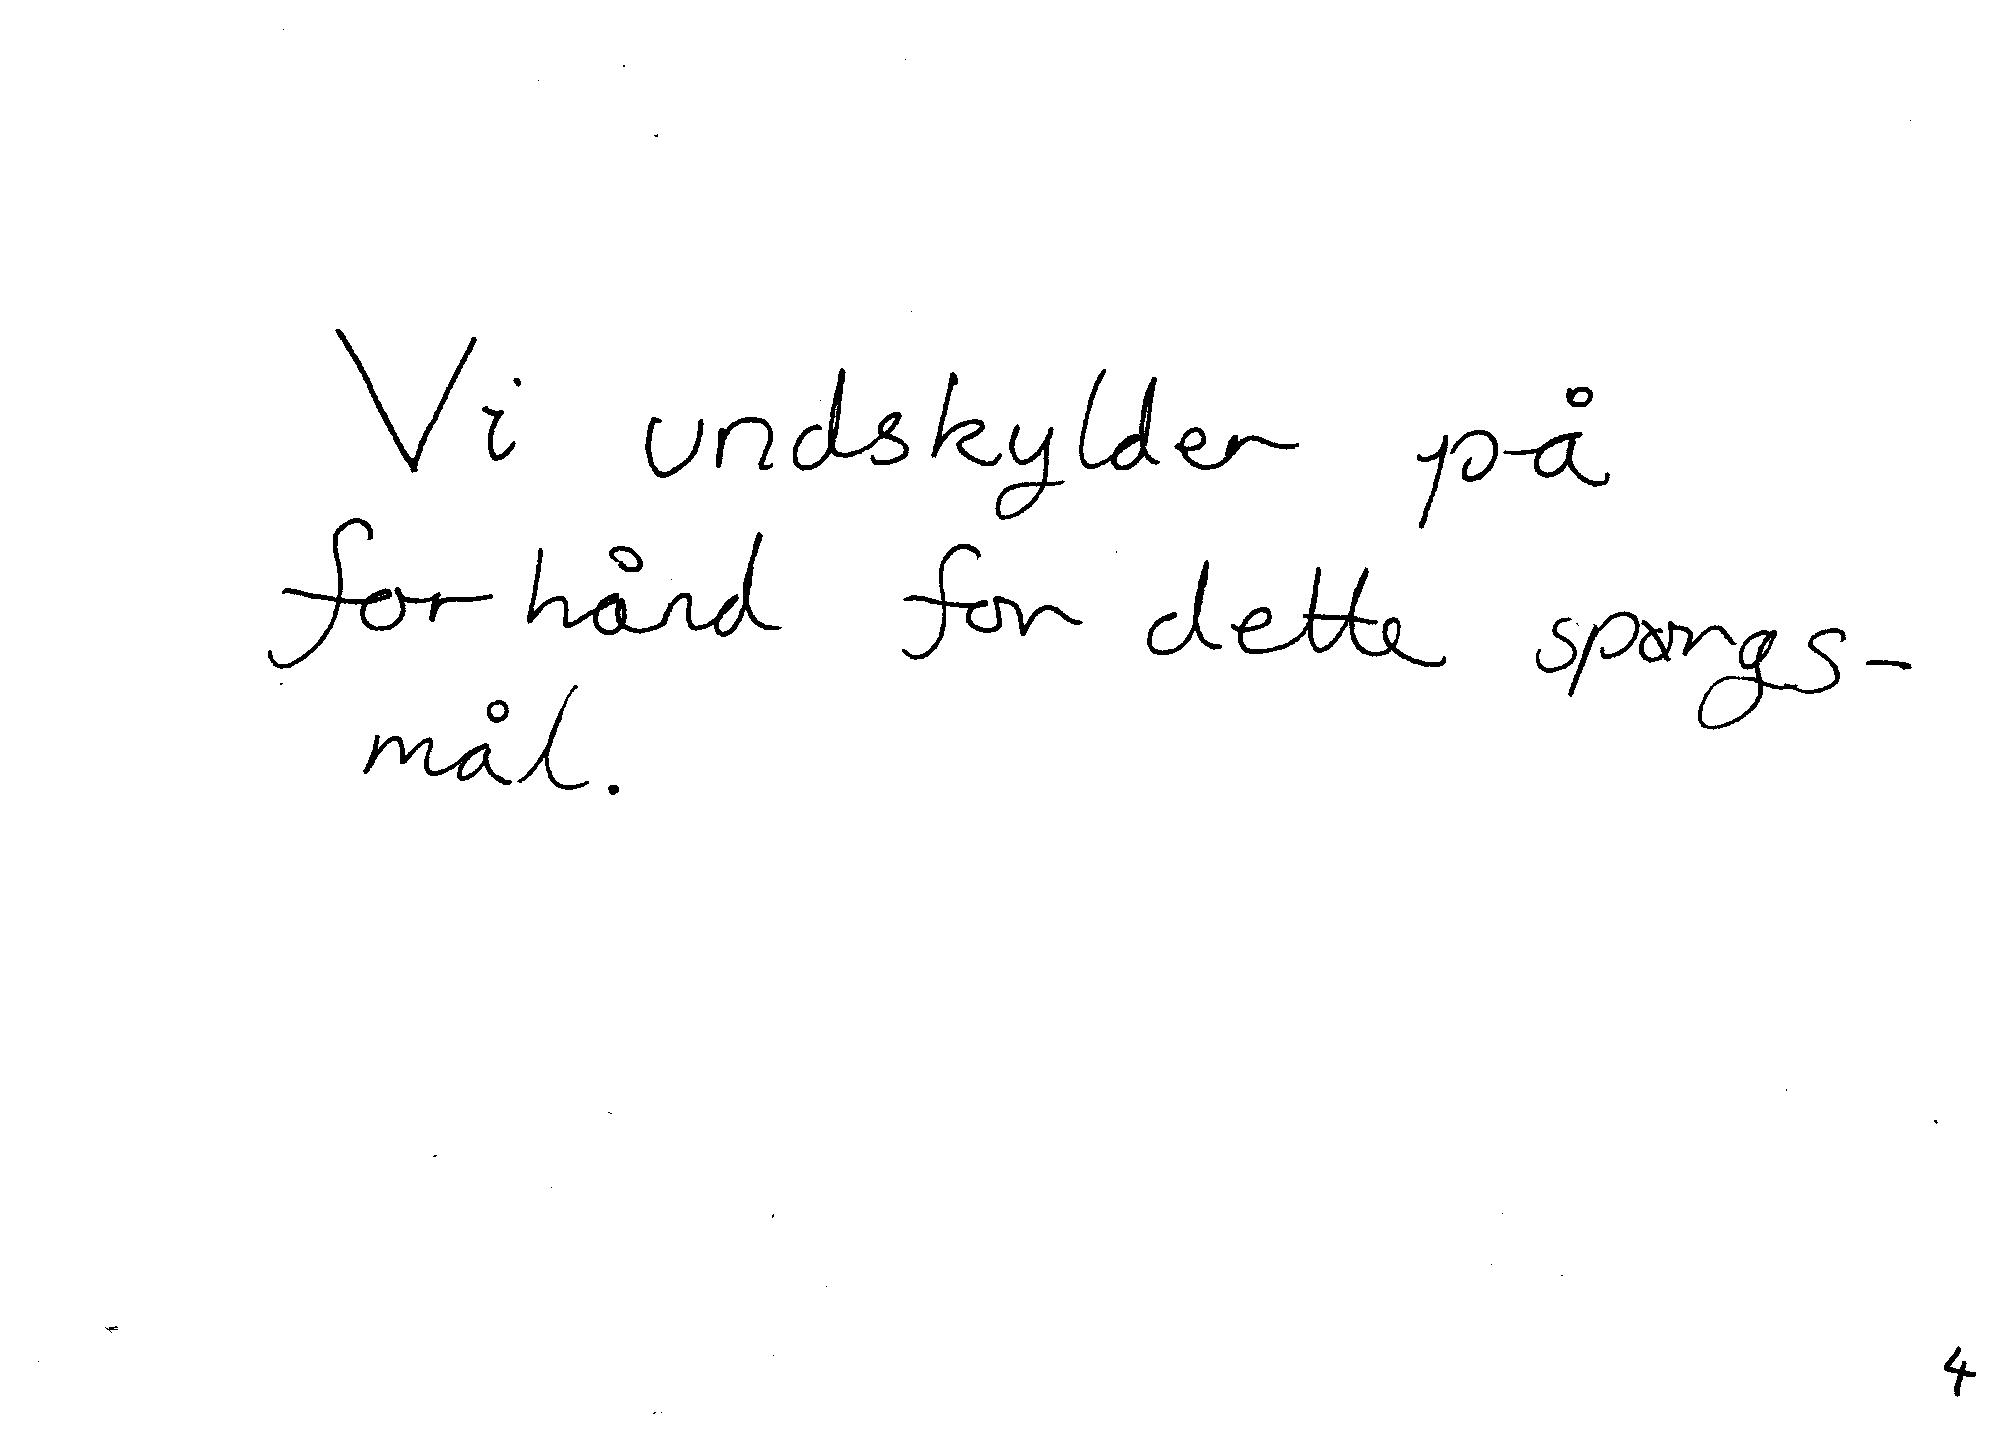 Vi undskylder på
forhånd for dette spørgs-
mål.
4